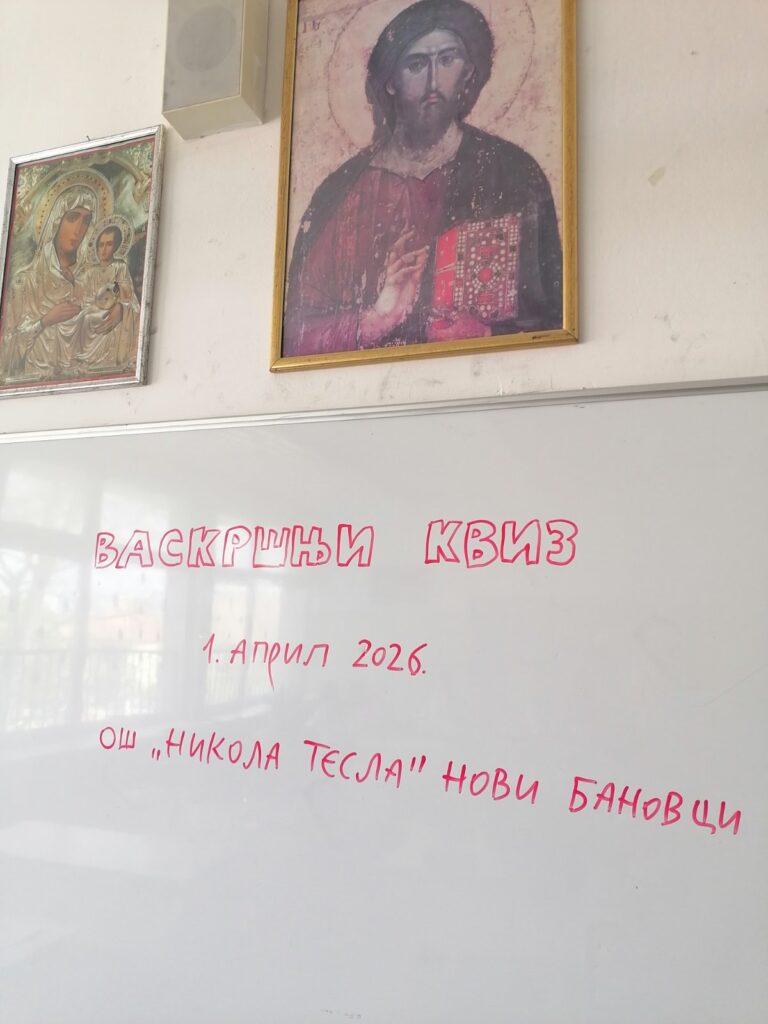 ВАСКРШЊИ КВИЗ
1. АПРИЛ 2026.
ОШ „НИКОЛА ТЕСЛА" НОВИ БАНОВЦИ